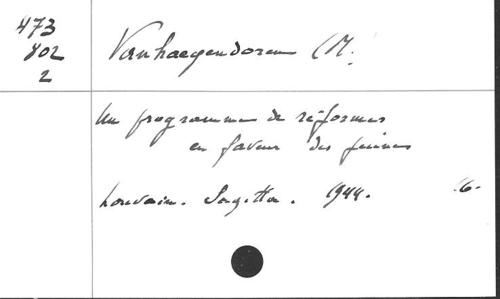 473
802
2
Vanhaegendoren (M.
Un programme de réformes
en faveur des jeunes
Louvain. Sagitta. 1944. 16.